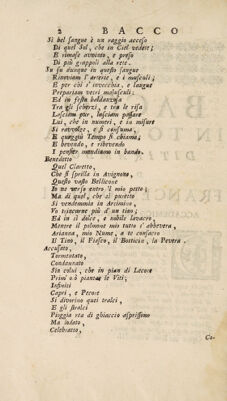 2 BACCO
Si bel sangue è un raggio acceso
Di quel Sol, che in Ciel vedete;
E rimase avvinto, e preso
Di più grappoli alla rete.
Su su dunque in questo sangue
Rinoviam l'arterie, e i musculi;
E per chi s'invecchia, e langue
Prepariam vetri majusculi:
Ed in festa baldanzosa
Tra gli scherzi, e tra le risa
Lasciam pur, lasciam passare
Lui, che in numeri, e in misure
Si ravvolge, e si consuma,
E quaggiù Tempo si chiama;
E bevendo, e ribevendo
I pensier mandiamo in bando.
Benedetto
Quel Claretto,
Che si spilla in Avignone,
Questo vasto Bellicone
Io ne verso entro 'l mio petto;
Ma di quel, che sì puretto
Si vendemmia in Artimino,
Vo trincarne più d'un tino;
Ed in sì dolce, e nobile lavacro,
Mentre il polmone mio tutto s'abbevera,
Arianna, mio Nume, a te consacro
Il Tino, il Fiasco, il Botticin, la Pevera.
Accusato,
Tormentato,
Condannato
Sia colui, che in pian di Lecore
Prim' osò piantar le Viti;
Infiniti
Capri, e Pecore
Si divorino quei tralci,
E gli stralci
Pioggia rea di ghiaccio asprissimo
Ma lodato,
Celebrato,
Co-